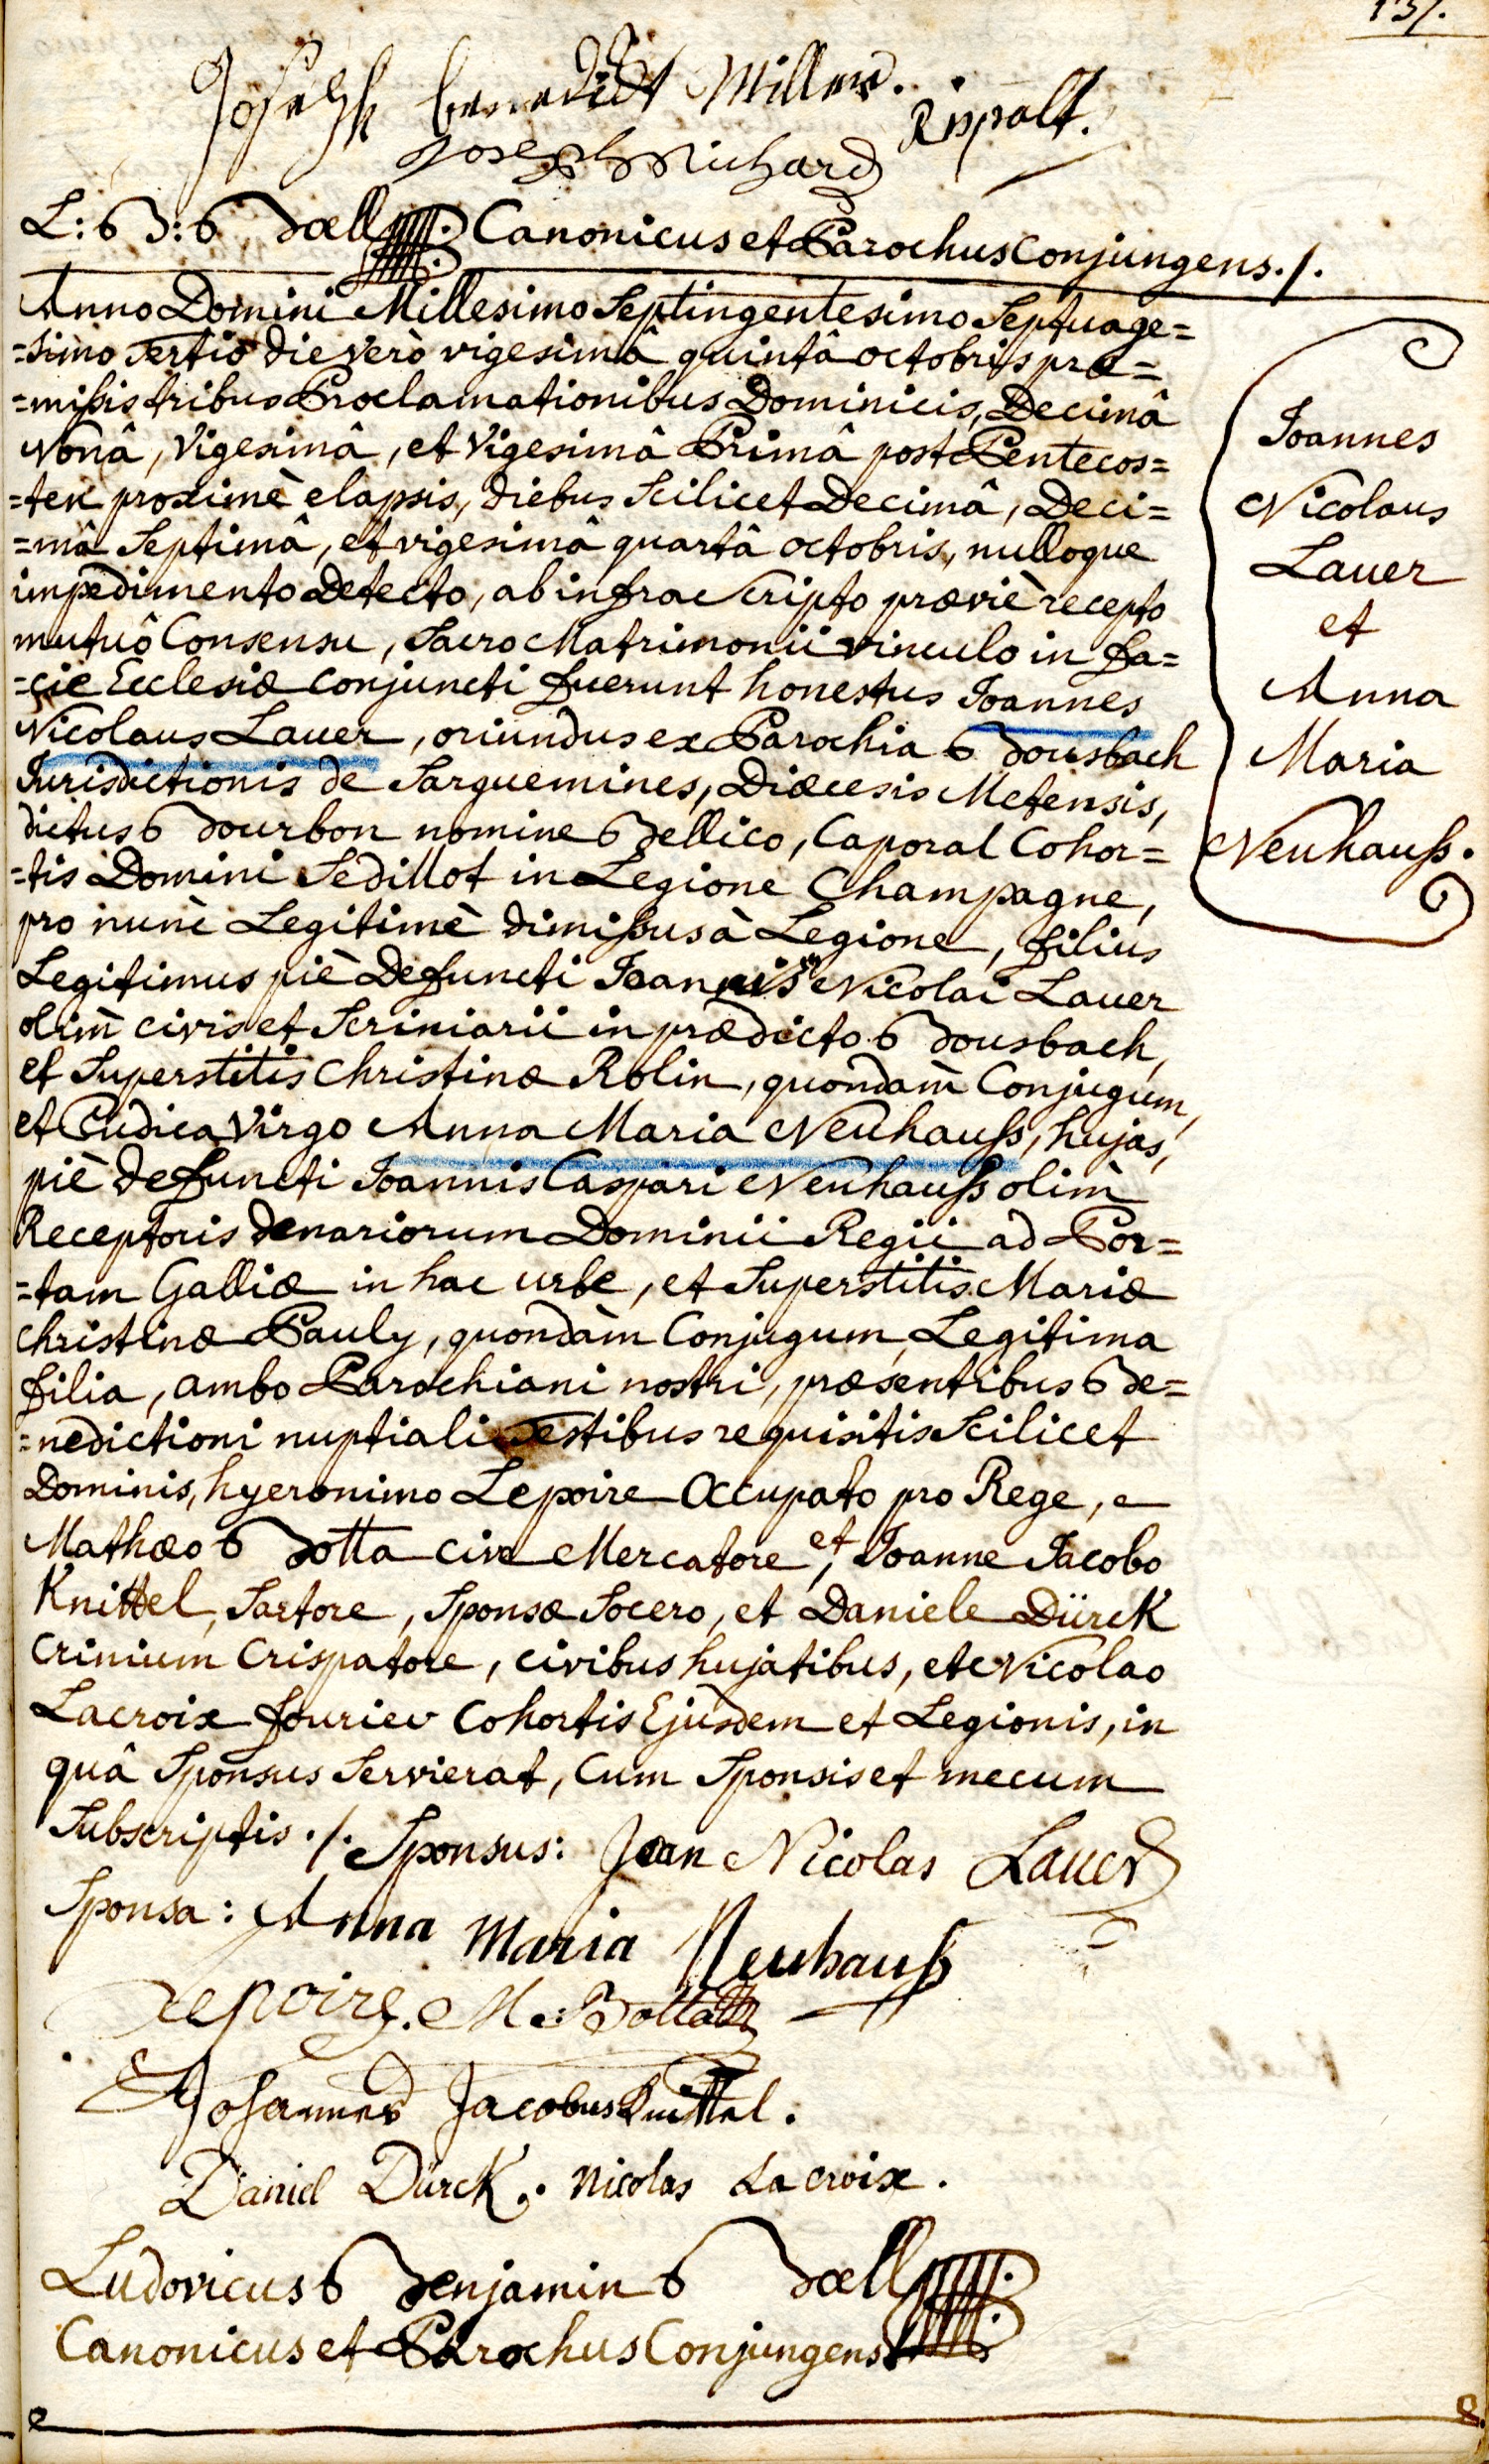 137.
Joseph benedict Miller. Rispalt.
Joseph Richard
L: B: Boell Canonicus et Parochus Conjungens./.
Anno Domini Millesimo Septingentesimo Septuage=
=simo Tertio die verò vigesimâ quintâ octobris præ=
=mißis tribus Proclamationibus Dominicis, Decimâ
Nonâ, Vigesimâ, et Vigesimâ Primâ post Pentecos=
=ten proximè elapsis, diebus Scilicet Decimâ, Deci=
=mâ Septimâ, et vigesimâ quartâ octobris, nulloque
impedimento Detecto, ab infra Scripto præviè recepto
mutuô Consensu, Sacro Matrimonii vinculo in fa=
=cie Ecclesiæ Conjuncti fuerunt honestus Joannes
Nicolaus Lauer, oriundus ex Parochia Bousbach
Jurisdictionis de Sarguemines, Diœcesis Metensis,
dictus Bourbon nomine Bellico, Caporal Cohor=
=tis Domini Sedillot in Legione Champagne,
pro nunc Legitimè dimißus à Legione, filius
Legitimus piè Defuncti Joannis Nicolai Lauer
olim civis et Scriniarii in prædicto Bousbach,
et Superstitis Christinæ Rolin, quondàm Conjugum,
et Pudica Virgo Anna Maria Neuhauß, hujas,
piè defuncti Joannis Caspari Neuhauß olìm
Receptoris denariorum Dominii Regii ad Por=
=tam Galliæ in hac urbe, et Superstitis Mariæ
Christinæ Pauly, quondàm Conjugum, Legitima
filia, ambo Parochiani nostri, præsentibus Be=
=nedictioni nuptiali Testibus requisitis Scilicet
Dominis, hyeronimo Lepoire Occupato pro Rege,
Mathæo Botta cive Mercatore, et Joanne Jacobo
Knittel, Sartore, Sponsæ Socero, et Daniele Dürck
Crinium Crispatore, civibus hujatibus, et Nicolao
Lacroix fourier Cohortis Ejusdem et Legionis, in
quâ Sponsus Servierat, Cum Sponsis et mecum
Subscriptis ./. Sponsus: Jean Nicolas Lauer
Sponsa: Anna Maria Neuhauß
Lepoire. M: Botta
Johannes Jacobus Knittel.
Daniel Dürck. Nicolas Lacroix.
Ludovicus Benjamin Boell
Canonicus et Parochus Conjungens
Joannes
Nicolaus
Lauer
et
Anna
Maria
Neuhauß.